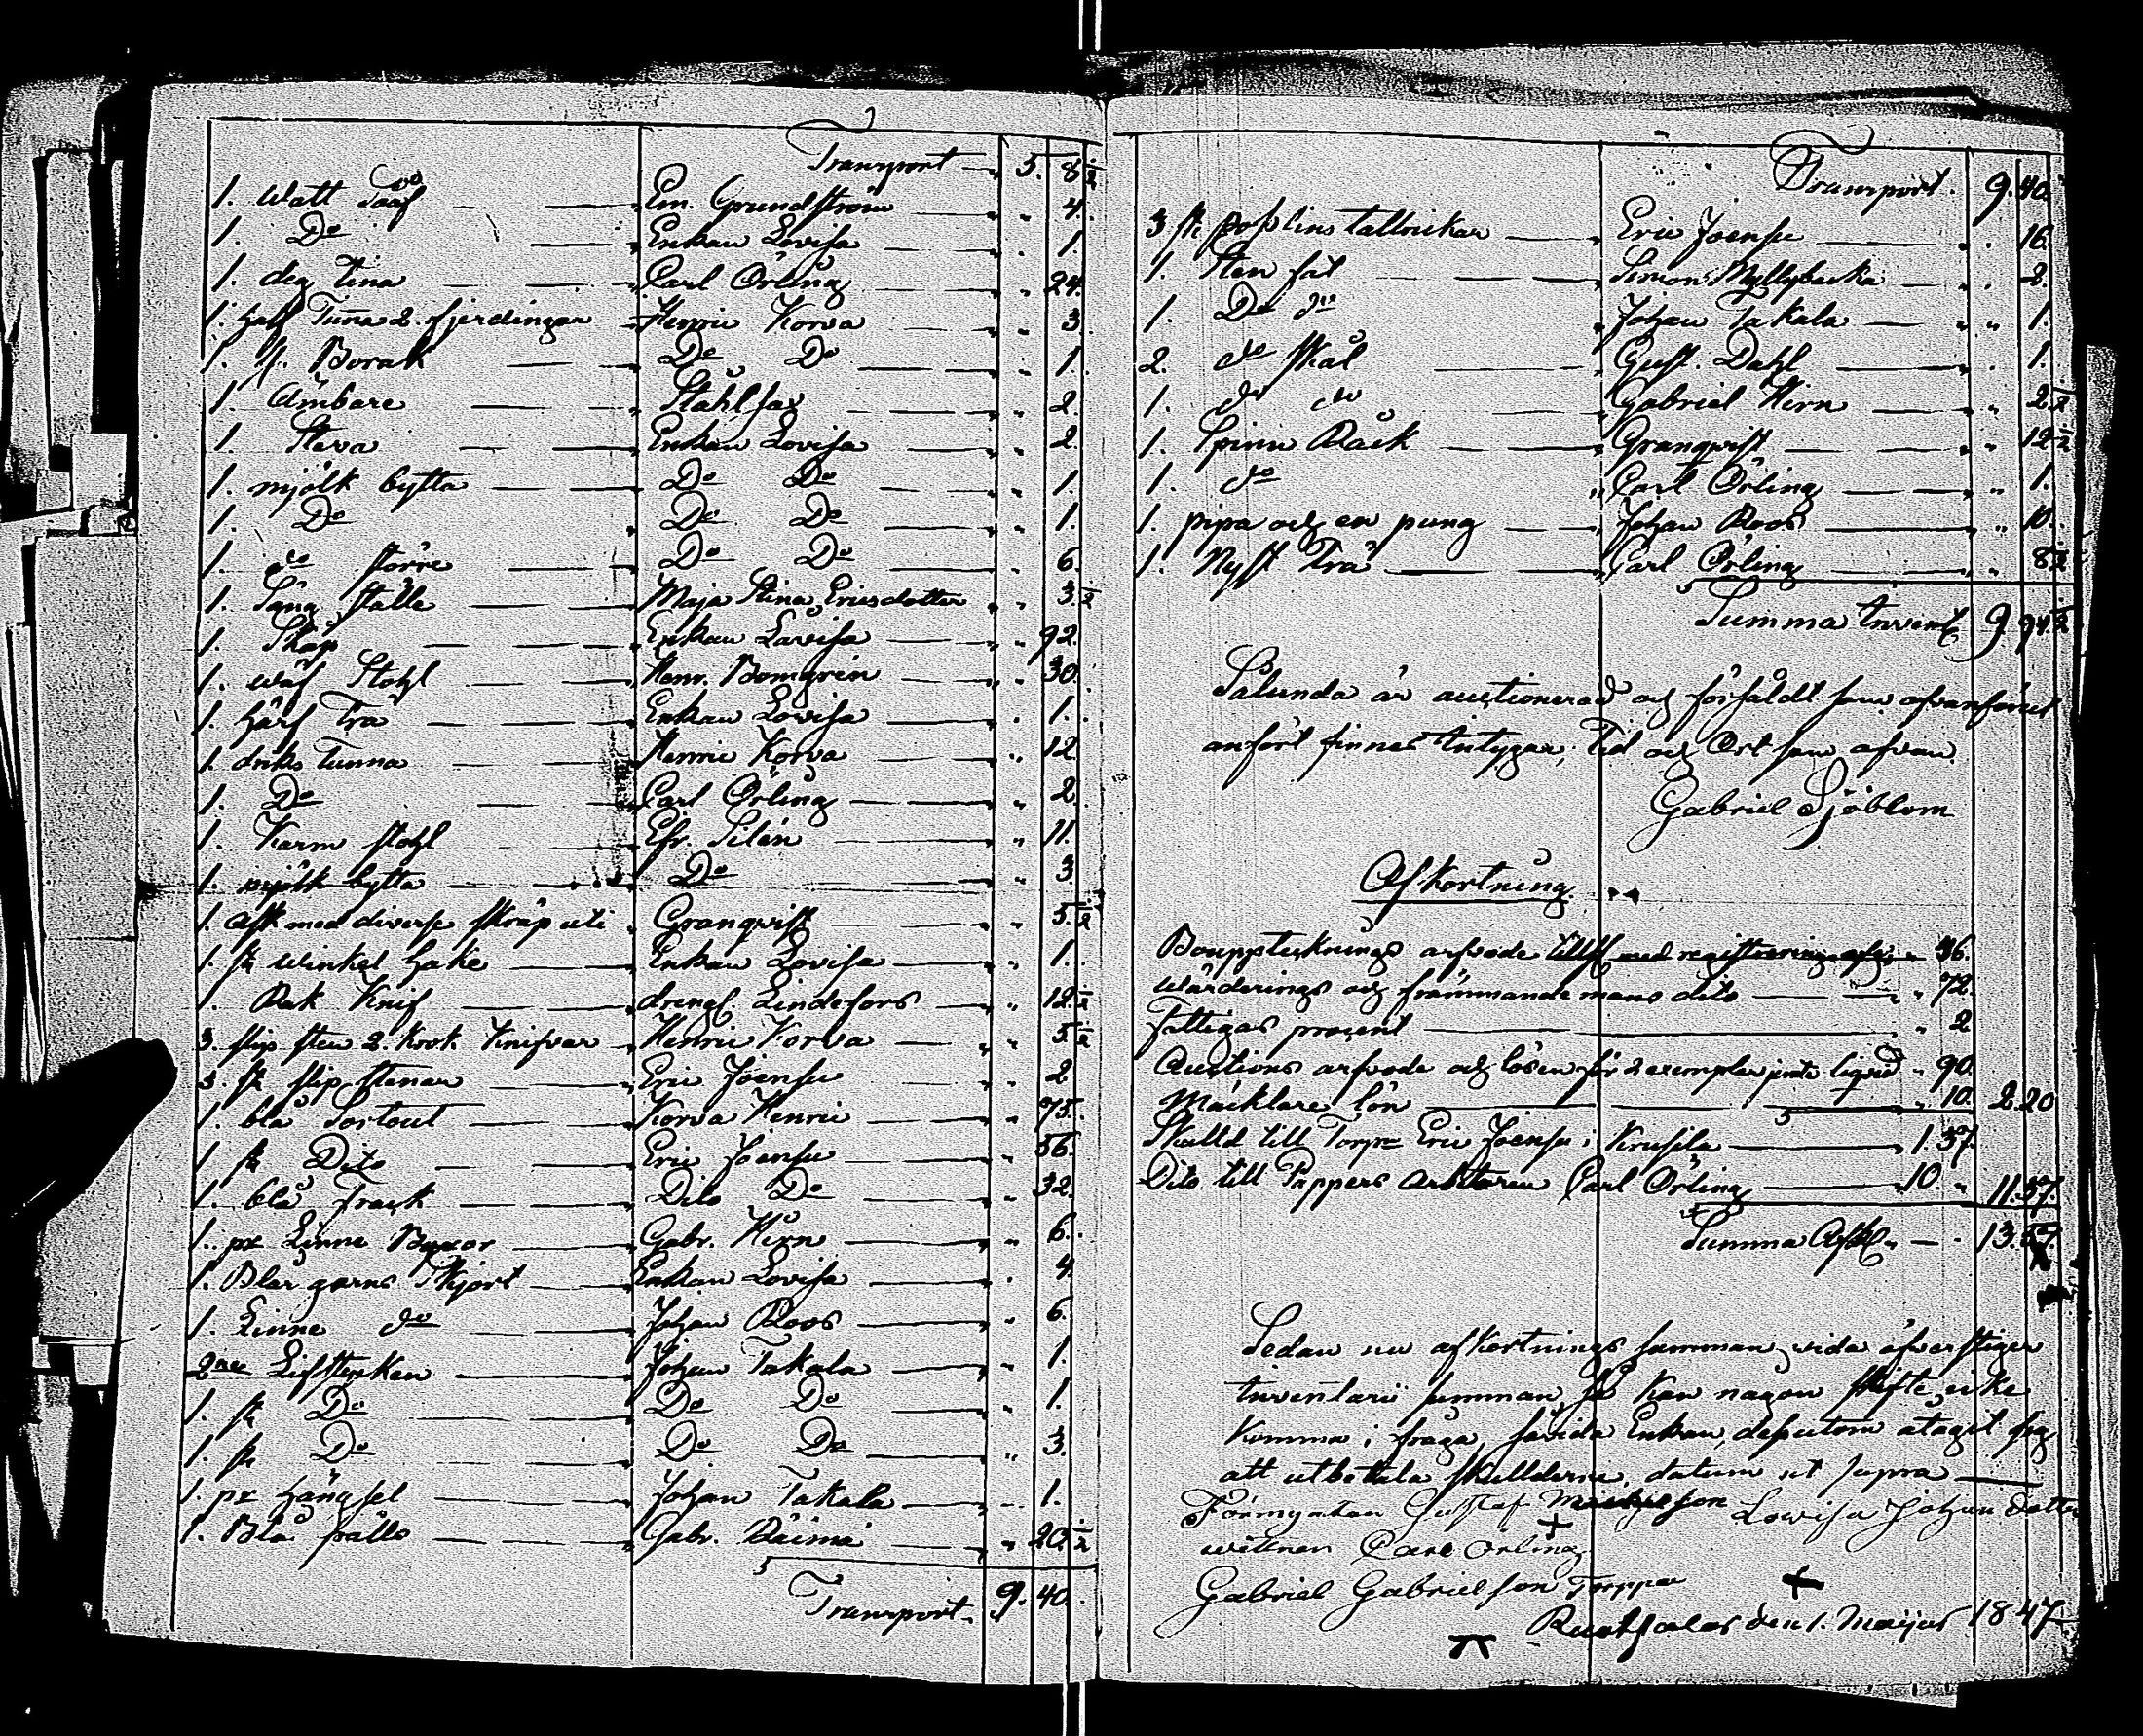 Transport 5. 8 1/2
1. watt Såå Em. Grundström " 4.
1. Do Enkan Lovisa " 1.
1. deg tina Carl Örling " 24.
1. half Tuña 2. fjerdingar Henric Korva " 3.
1. Borak Do Do " 1.
1. Ämbare Ståhlsax " 2.
1. Steva Enkan Lovisa " 2.
1. mjölk bytta Do Do " 1.
1. Do Do Do " 1.
1. do större Do Do " 6.
1. Säng ställe Maja Stina Ericsdotter " 3 1/2
1. Skåp Enkan Lovisa " 92.
1. wäf Stohl Henr. Bomgrén " 30.
1. Trä Enkan Lovisa " 1.
1. driks Tunna Henric Korva " 12
1. Do Carl Örling " 2.
1. Karm stohl Efr. Silén " 11.
1. mjölk bytta Do " 3.
1. ask med diverse skräp uti Granqvist " 5 1/2
1. st winkel hake Enkan Lovisa " 1.
1. Rak Knif drengf. Lindefors " 12 1/2
3. slip sten 2. krok Knifvar Henric Korva " 5 1/2
3. st slip stenar Eric Joensu " 2
1. blå Sortout Korva Henric " 75.
1 st Dito Eric Joensu " 56.
1. blå frack Dito Do " 32.
1. pr Linne Byxor Gabr. Hirn " 6.
1. Blar garns Skjort Enkan Lovisa " 4.
1. Linne do Johan Roos " 6.
2ne Lifstycken Johan Takala " 1.
1. st Do Do Do " 1.
1. st Do Do Do " 3.
1. pr hängsel Johan Takala " 1.
1. Blå Gabr. Räimä " 20 1/2
Transport 9. 40.
Transport. 9. 40.
3 st posslins tallrickar Eric Joensu " 16.
1. Sten fat Simon Myllybacka " 2.
1. Do do Johan Takala " 1.
2. do skål Gust. Dahl " 1.
1. do do Gabriel Hirn " 2 1/2
1. Spinn Råck Granqvist " 12 1/2
1. do Carl Örling " 1.
1. pipa och en pung Johan Roos " 10.
1. Nyst Trä Carl Örling " 8 1/2
Summa Invent 9. 94 1/2
Sålunda är auctionerad och försåldt som ofvanföre
anfört finnes Intygar; Tid och Ort som ofvan.
Gabriel Sjöblom
Afkortning
Boupptecknings arfvode med registrering " 36.
wärderings och främmande mans dito " 72.
Fattigas procent " 2
Auctions arfvode och lösen för 2 exemplar liqvid " 90.
Mäcklare lön " 10. 2. 20
Skulld till Torpr Eric Joensu i Krusila 1. 37
Dito till Pappers arbetaren Carl Örling 10 " 11. 37.
Summa Afk. 13. 57.
Sedan nu afkortnings summan vida öfverstiger
Inventarii summan, så kan någon skifte icke
komma i fråga, såvida Enkan, desutom åtagit sig
att utbetala skullderne. datum ut supra
Förmyntan Gustaf Lowisa Johan dotter
wittnar Carl Örling
Gabriel Gabrielson Torppa
den 1. Maijus 1847